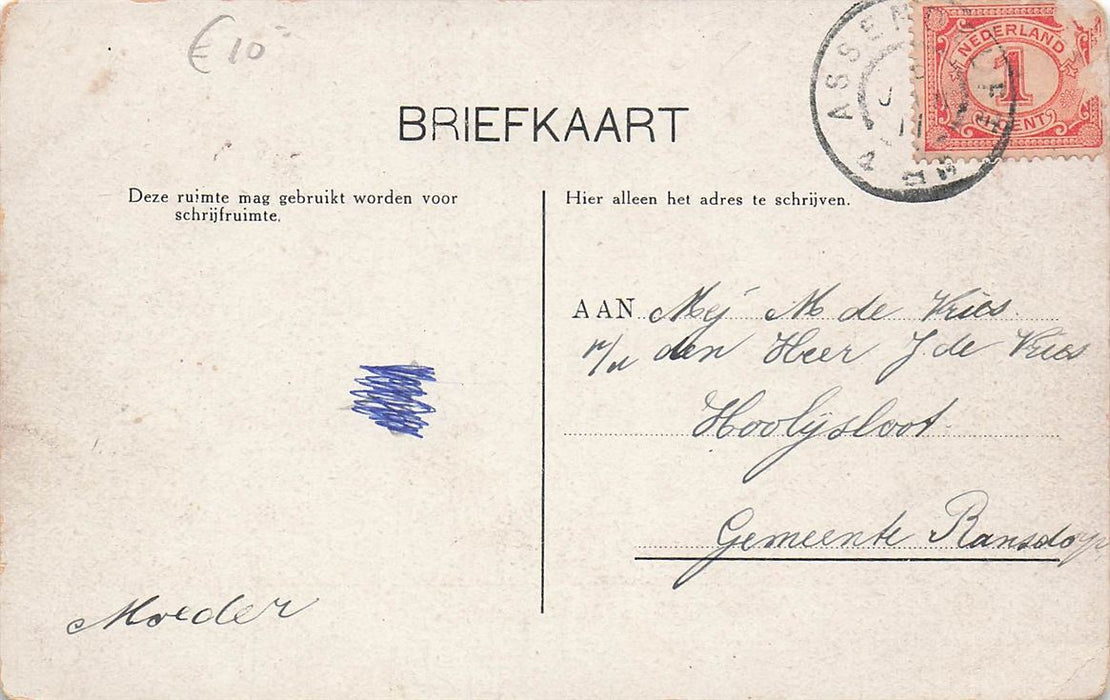 €10-
BRIEFKAART
NEDERLAND
1
CENT
ASSEN
Deze ruimte mag gebruikt worden voor
schrijfruimte.
Hier alleen het adres te schrijven.
AAN Mej M de Vries
p/a den Heer J de Vries
Hoolijsloot
Gemeente Ransdorp
Moeder